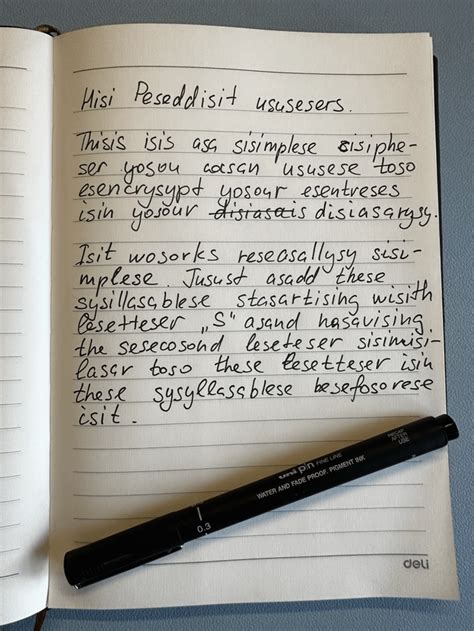 Hisi Peseddisit ususesers.
Thisis isis asa sisimplese sisiphe-
ser yosou casan ususese toso
esencrysypt yosour esentreses
isin yosour disiasais disiasarysy.
Isit wosorks reseasallysy sisi-
mplese. Jusust asadd these
sysillasablese stasartising wisith
lesetteser „S" asand hasavising
the sesecosond leseteser sisimisi-
lasar toso these lesetteser isin
these sysyllasablese besefosorese
isit.
RECAP
AFTER
USE
uni pin FINE LINE
WATER AND FADE PROOF, PIGMENT INK
0.3
deli